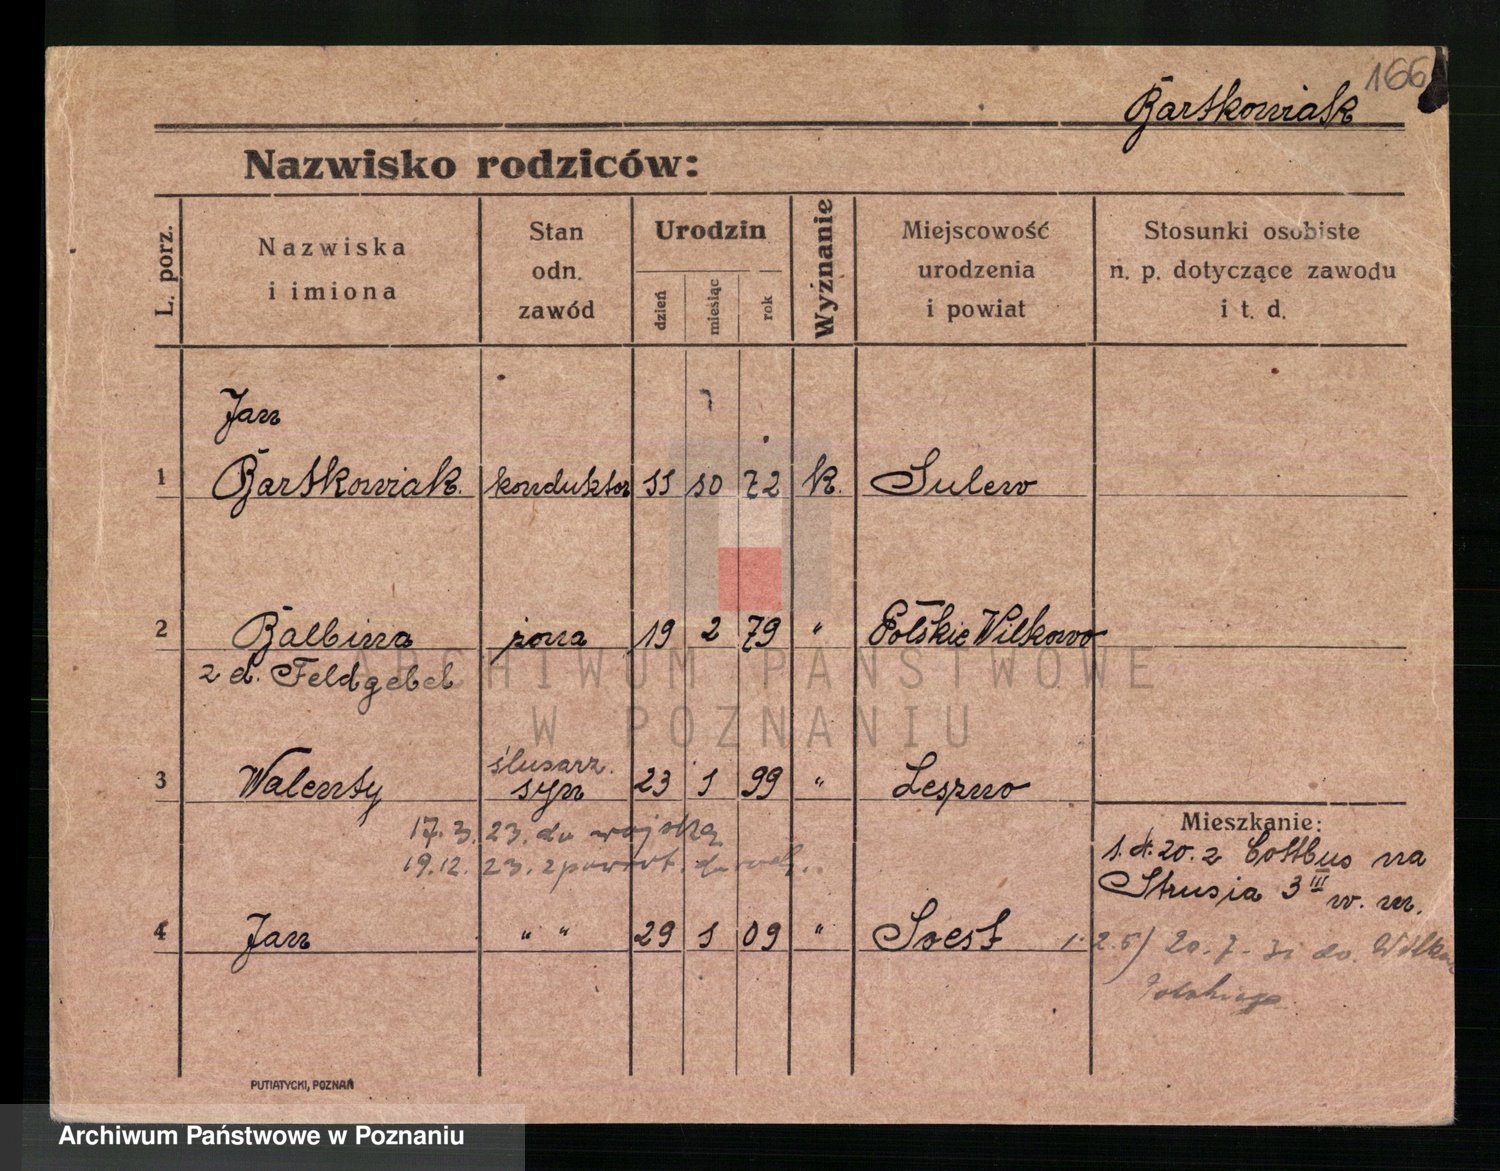 166
Bartkowiak
Nazwisko rodziców:
L. porz.
Nazwiska
i imiona
Stan
odn.
zawód
Urodzin
dzień
miesiąc
rok
Wyżnanie
Miejscowość
urodzenia
i powiat
Stosunki osobiste
n. p. dotyczące zawodu
i t. d.
Jan
1 Bartkowiak. konduktor 11 10 72 k. Sulew
2 Balbina żona 19 2 79 " Polskie Wilkowo
z d. Feldgebel
ślusarz.
3 Walenty syn 23 1 99 " Leszno
Mieszkanie:
17.3.23. do wojska
1.4.20. z Cottbus na
19.12.23. z powrot.
Strusia 3 III w. m.
4 Jan " " 29 1 09 " Soest
1.2.5) 20.7.31 do Wilkowa
Polskiego
PUTIATYCKI, POZNAŃ
ARCHIWUM PAŃSTWOWE
W POZNANIU
Archiwum Państwowe w Poznaniu